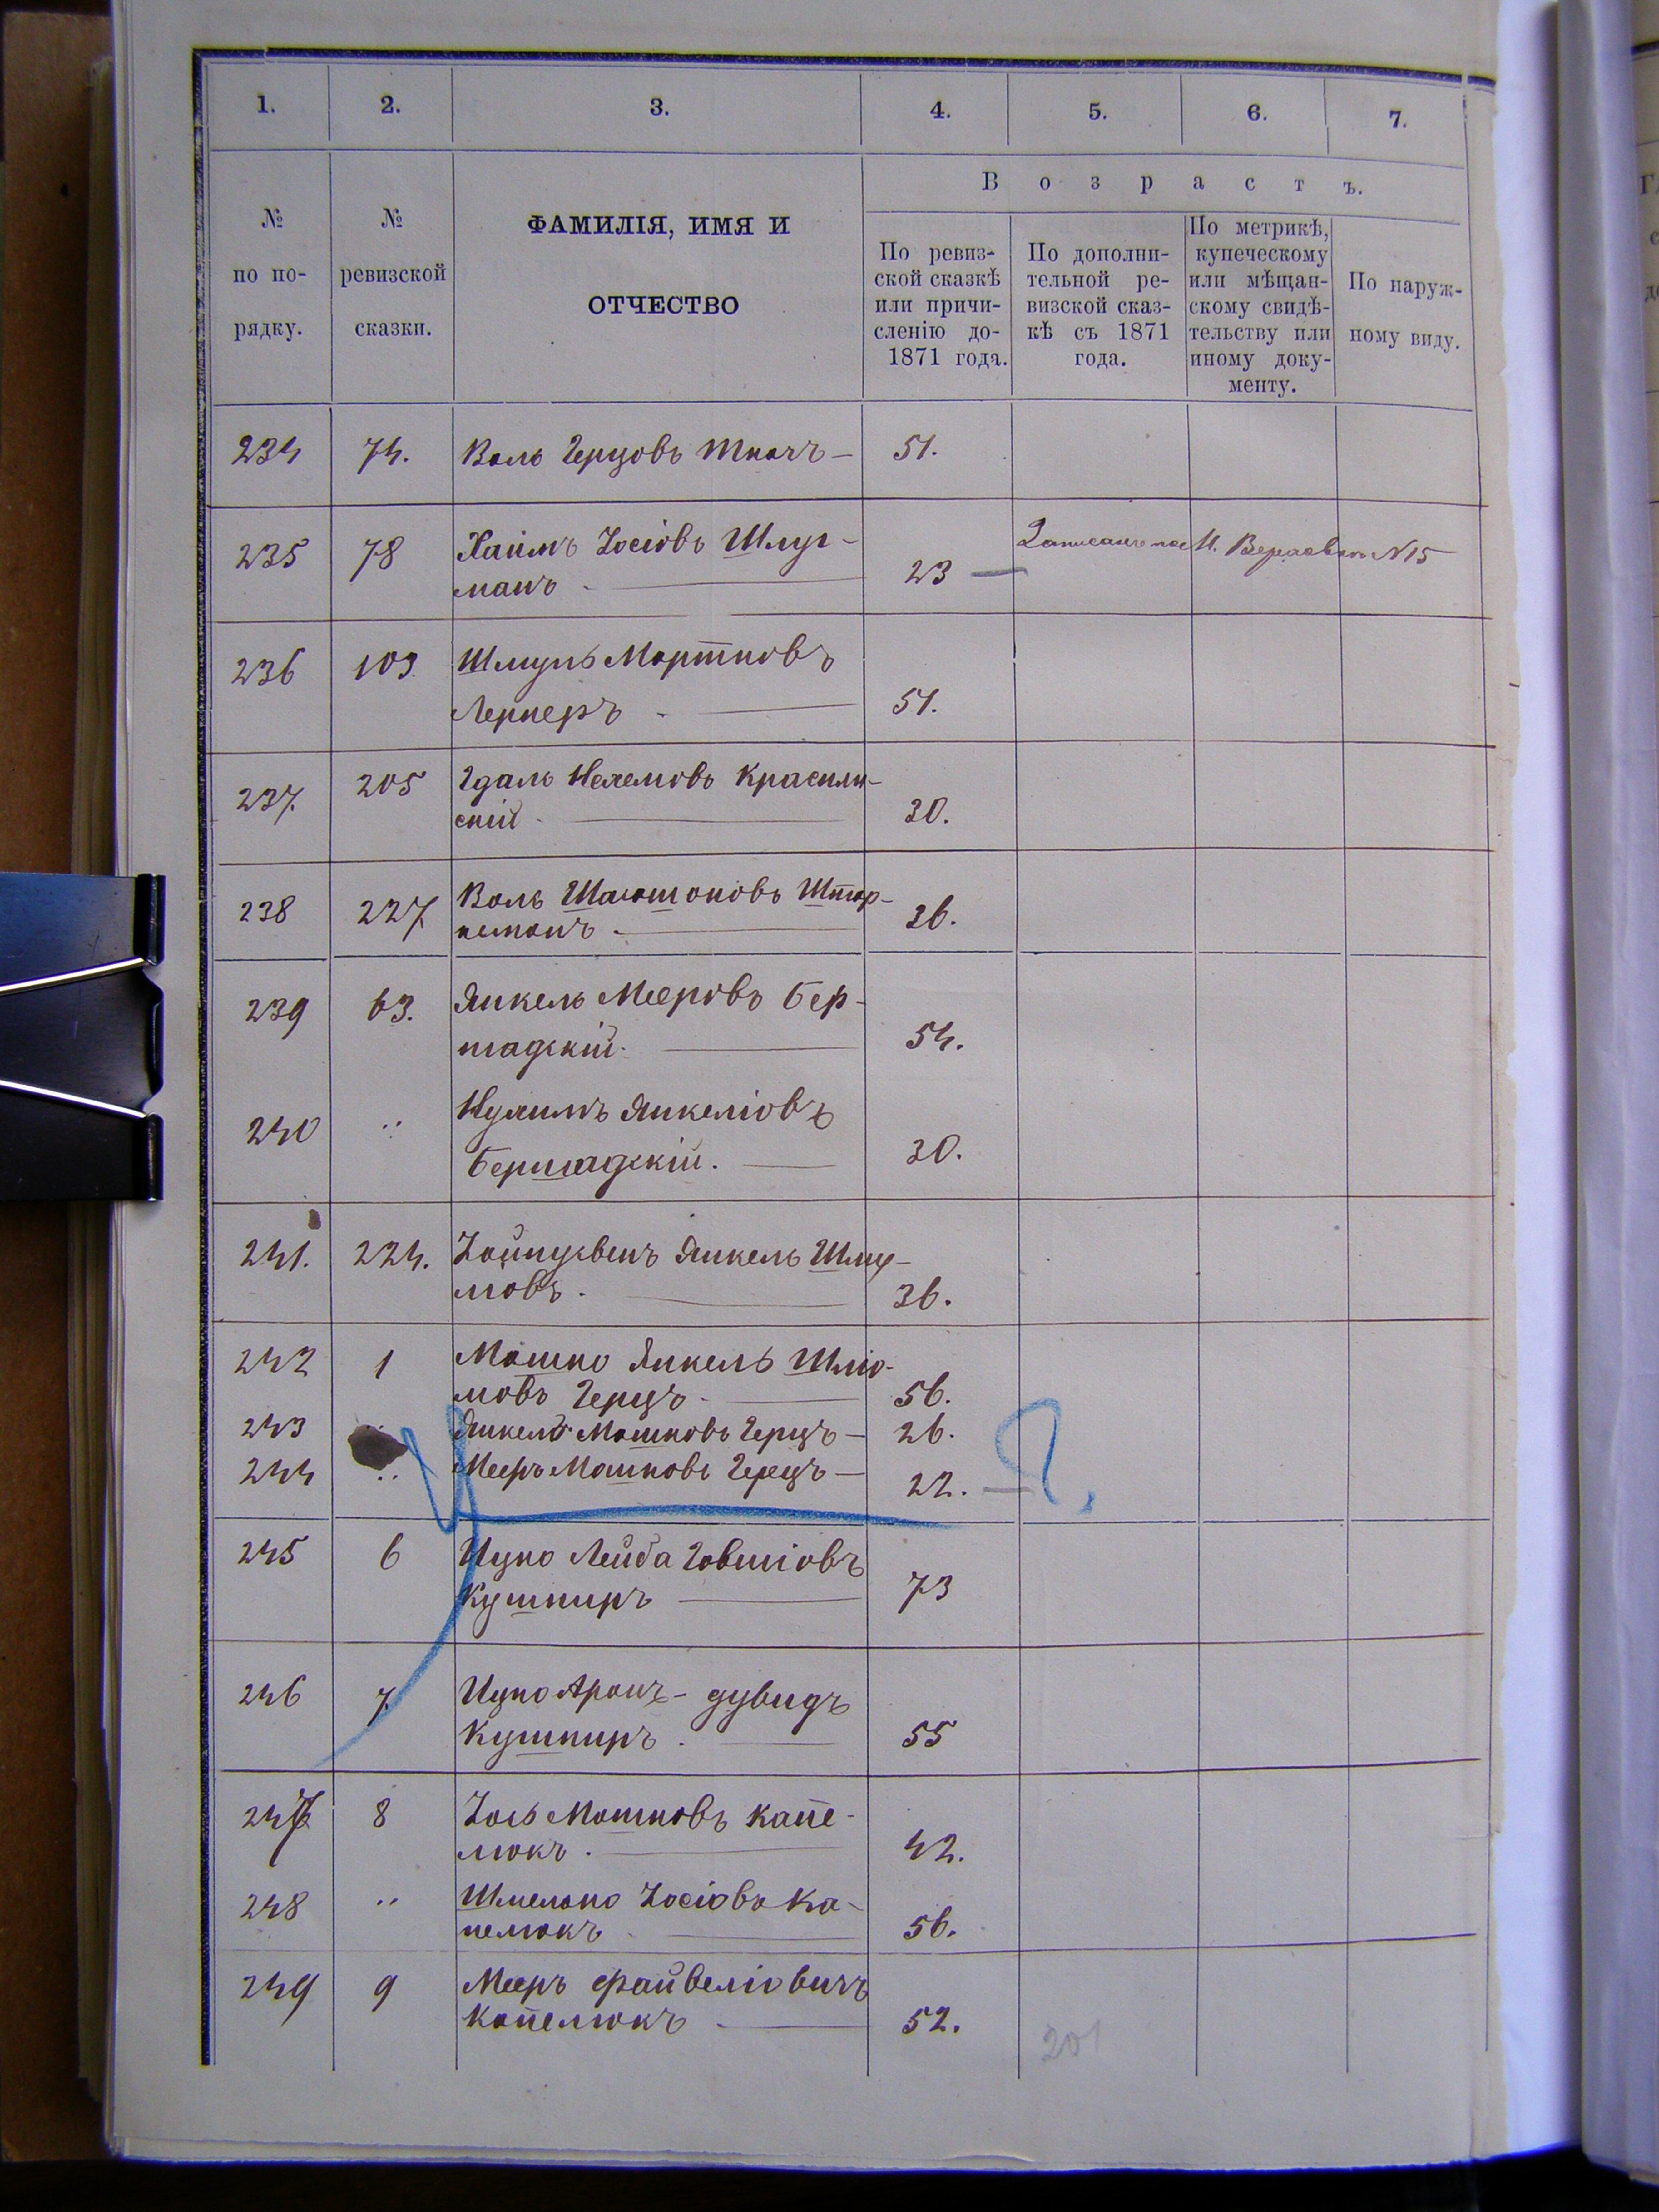 1. 2. 3. 4. 5. 6. 7.
№ по по-рядку.
№ ревизской сказки.
ФАМИЛІЯ, ИМЯ И
ОТЧЕСТВО
Возрастъ.
По ревиз-
ской сказкѣ
или причи-
сленію до-
1871 года.
По дополни-
тельной ре-
визской сказ-
кѣ съ 1871
года.
По метрикѣ,
купеческому
или мѣщан-
скому свидѣ-
тельству или
иному доку-
менту.
По наруж-
ному виду.
234 74. Воль Герцовъ Ткачъ 51.
235 78 Хаимъ Іосіовъ Шлуг-
манъ 23 Записанъ по М. №15
236 103 Шмуль Мортковъ
Лернеръ 51.
237. 205 Гдаль Нехемовъ Красилн-
скій 30.
238 227 Воль Штар-
кманъ 36.
239 63. Янкель Мееровъ Бер-
шадскій 54.
240 .. Нухимъ Янкеліовъ
Бершадскій. 30.
241. 224. Янкель Шму-
ловъ. 36.
242 1 Мошко Янкель Шліо-
мовъ Герцъ 56.
243 Янкель Мошковъ Герцъ 26.
244 .. Мееръ Мошковъ Герцъ 22. ?
245 6 Ицко Лейба Говшіовъ
Кушниръ 73
246 7 Ицко Аронъ-Дувидъ
Кушниръ. 55
247 8 Іось Мошковъ Капе-
люкъ. 42.
248 .. Шмелько Іосіовъ Ка-
пелюкъ 56.
249 9 Мееръ Файвеліовичъ
Капелюкъ 52.
201